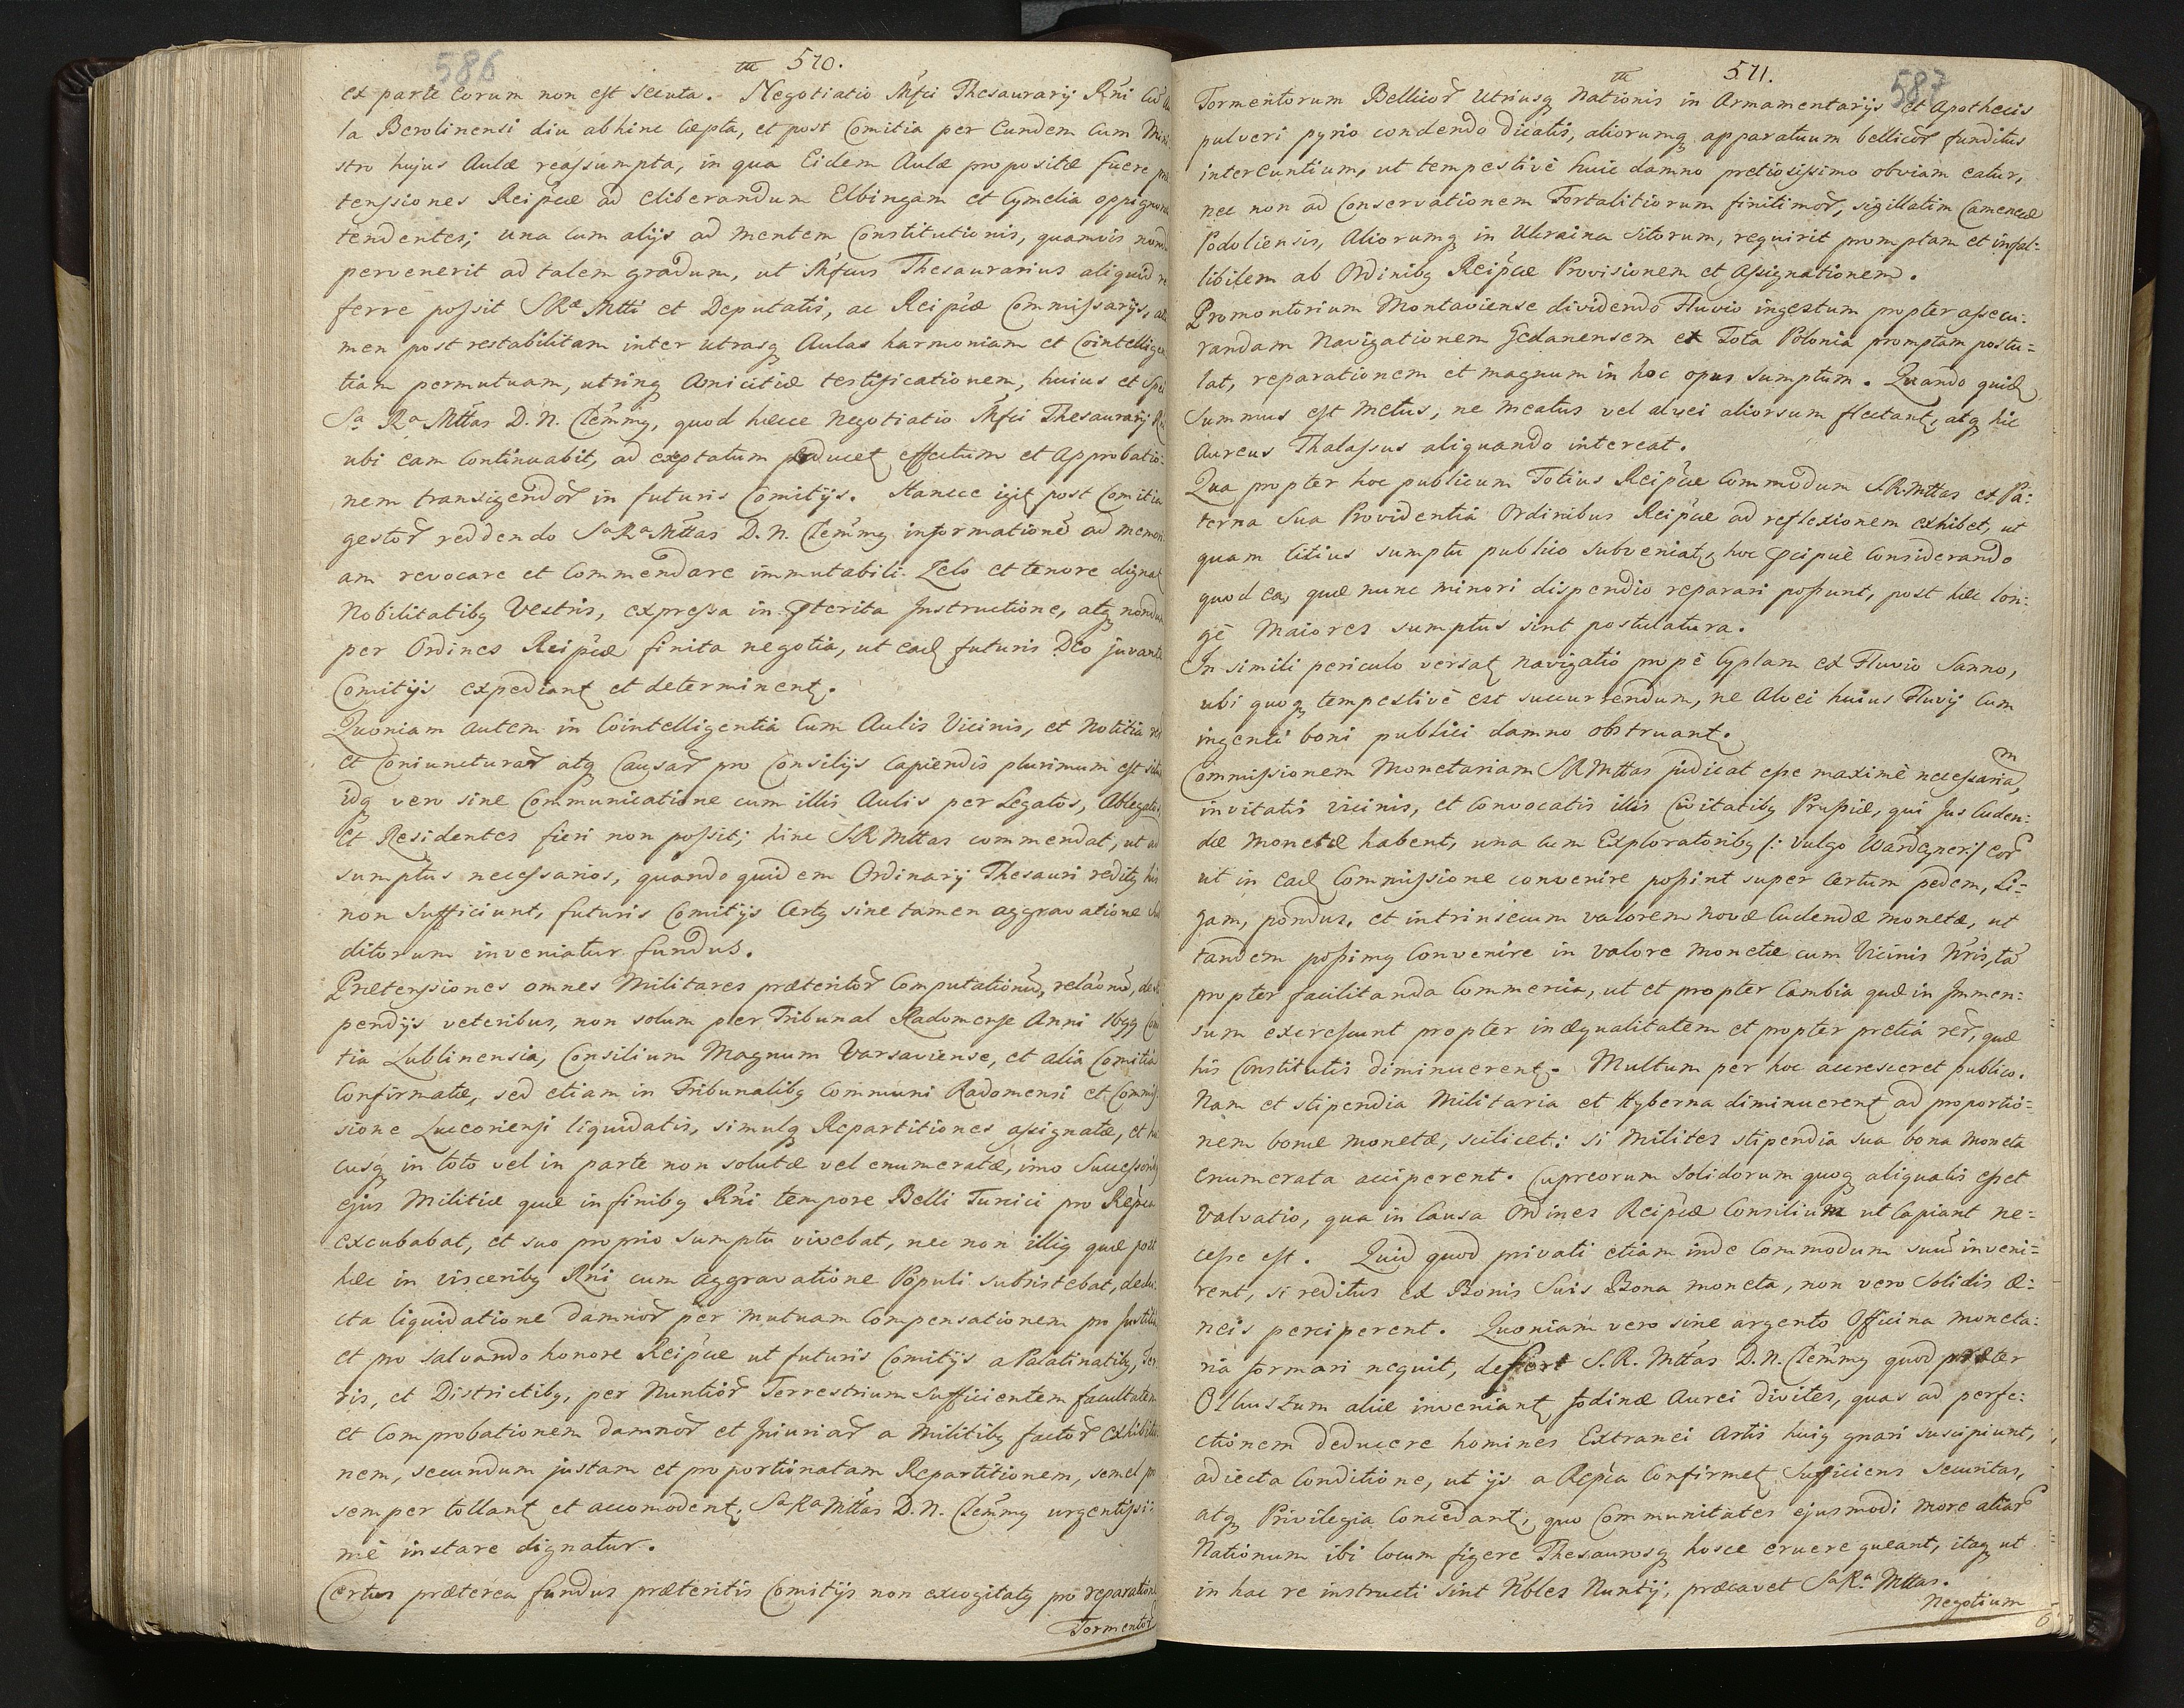 586
m 570.
ex parte eorum non est secuta. Negotiatio Ill̃fci Thesaurarij Rñi cũ Au
la Berolinensi diu abhinc cæpta, et post Comitia per Eundem Cum Mini
stro hujus Aulæ reassumpta, in qua Eidem Aulæ propositæ fuere præ
tensiones Reip̃cæ ad eliberandum Elbingam et Cymelia oppignora
tendentes; una cum alijs ad mentem Constitutionis, quamvis nond
pervenerit ad talem gradum, ut Ill̃fcus Thesaurarius aliquid re
ferre possit SRæ Mtti et Deputatis, ac Reip̃cæ Commissarijs, atta
men post restabilitam inter utrasq Aulas harmoniam et Cointelligen
tiam permutuam, utrinq Amicitiæ testificationem, huius et Spei
Sa Ra Mttas D. N. Clem̃mq, quod hæcce Negotiatio Ill̃fci Thesaurarij Rñi
ubi eam Continuabit, ad exoptatum producet effectum et Approbatio:
nem transigendor̃ in futuris Comitijs. Hancce igit post Comitia
gestor̃ reddendo Sa Ra Mttas D. N. Clem̃mq informationẽ ad memori
am revocare et Commendare immutabili Zelo et tenore dignat
Nobilitatibq Vestris, expressa in præterita Instructione, atq nondum
per Ordines Reip̃cæ finita negotia, ut ead futuris Deo juvante
Comitijs expediant et determinent.
Quoniam autem in Cointelligentia Cum Aulis Vicinis, et Notitia rer̃
et Coniuncturar̃ atq Causar̃ pro Consilijs Capiendis plurimum est situ
idq vero sine Communicatione cum illis Aulis per Legatos, Ablegatos
et Residentes fieri non possit; hinc SRMttas commendat, ut ad
sumptus necessarios, quando quidem Ordinarij Thesauri reditq his
non Sufficiunt, futuris Comitijs Certq sine tamen aggravatione Sub
ditorum inveniatur fundus.
Prætensiones omnes Militares præteritor̃ Computationũ, relãonũ, de sti
pendijs veteribus, non solum per Tribunal Radomense Anni 1699 Comi
tia Lublinensia, Consilium Magnum Varsaviense, et alia Comitia
Confirmatæ, sed etiam in Tribunalibq Communi Radomensi et Commis
sione Luceoriensi liquidatis, simulq Repartitiones assignatæ, et hu
cusq in toto vel in parte non solutæ vel enumeratæ, imo Successoribq
ejus Militiæ quæ in finibq Rñi tempore Belli Turcici pro Rep̃ca
excubabat, et suo proprio Sumptu vivebat, nec non illiq quæ post
hæc in visceribq Rñi cum aggravatione Populi subsistebat, dedu
cta liquidatione damnor̃ per mutuam Compensationem pro Justitia
et pro salvando honore Reip̃cæ ut futuris Comitijs a Palatinatibq, Ter
ris, et Districtibq, per Nuntior̃ Terrestrium Sufficientem facultatem
et Comprobationem damnor̃ et Iniuriar̃ a Militibq factor̃ exhibitio
nem, secundum justam et proportionatam Repartitionem, semel pro
semper tollant et accomodent, Sa Ra Mttas D. N. Clem̃mq urgentissi:
mè instare dignatur.
Certus præterea fundus præteritis Comitijs non excogitatq pro reparatione
Tormentor̃
587
m 571.
Tormentorum Bellicor̃ Utriusq Nationis in Armamentarijs et Apothecis
pulveri pyrio condendo dicatis, aliorumq apparatuum bellicor̃ funditus
intereuntium, ut tempestivè huic damno pretiosissimo obviam eatur,
nec non ad Conservationem Fortalitiorum finitimor̃, sigillatim Camenecæ
Podoliensis, Aliorumq in Ukraina Sitorum, requirit promptam et infal:
libilem ab Ordinibq Reip̃cæ Provisionem et Assignationem.
Promontorium Montaviense dividendo Fluvio ingestum propter assecu:
randam Navigationem Gedanensem et Tota Polonia promptam postu=
lat, reparationem et magnum in hoc opus sumptum. Quando quid
Summus est Metus, ne meatus vel alvei aliorsum flectant, atq hic
Aureus Thalassus aliquando intereat.
Qua propter hoc publicum Totius Reip̃cæ Commodum S.R.Mttas ex Pa:
terna Sua Providentia Ordinibus Reip̃cæ ad reflexionem exhibet, ut
quam citius sumptu publico subveniat, hoc præcipuè Considerando
quod ea, quæ nunc minori dispendio reparari possunt, post hæc lon:
gè Maiores sumptus sint postulatura.
In simili periculo versat navigatio propè Cyplam ex Fluvio Sanno,
ubi quoq tempestivè est succurrendum, ne Alvei huius Fluvij Cum
ingenti boni publici damno obstruant.
Commissionem Monetariam SRMttas judicat esse maximè necessariam,
invitatis vicinis, et Convocatis illis Civitatibq Prussiæ, qui Jus Cuden:
dæ Monetæ habent, una cum Exploratoribq /: vulgo Wardeyner :/ eor̃
ut in ead Commissione convenire possint super Certum pedem, Li=
gam, pondus, et intrinsecum valorem novæ Cudendæ monetæ, ut
tandem possimq Convenire in valore Monetæ cum Vicinis Nr̃is, tã
propter facilitanda Commercia, ut et propter Cambia quæ in Immen:
sum excrescunt propter inæqualitatem et propter pretia rer̃, quæ
his Constitutis diminuerent. Multum per hoc accresceret publico.
Nam et stipendia Militaria et Hyberna diminuerent ad proportio=
nem bonæ Monetæ, scilicet: si Milites stipendia sua bona Moneta
enumerata acciperent. Cupreorum Solidorum quoq aliqualis esset
Valvatio, qua in Causa Ordines Reip̃cæ Consilium ut Capiant ne=
cesse est. Quid quod privati etiam inde Commodum suũ inveni=
rent, si reditus ex Bonis Suis Bona moneta, non vero Solidis æ:
neis perciperent. Quoniam vero sine argento Officina Moneta:
ria formari nequit, defert S.R. Mttas D. N. Clem̃mq quod præter
Olkuszum aliæ inveniant fodinæ Aurei divites, quas ad perfe:
ctionem deducere homines Extranei Artis huiq gnari suscipiunt,
adiecta Conditione, ut ijs a Rep̃ca Confirmet Sufficiens Securitas,
atq Privilegia Concedant, quo Communitates ejusmodi More aliar̃
Nationum ibi locum figere Thesaurosq hosce eruere queant, itaq ut
in hac re instructi sint Nobles Nuntij, præcavet Sa Ra Mttas.
Negotium